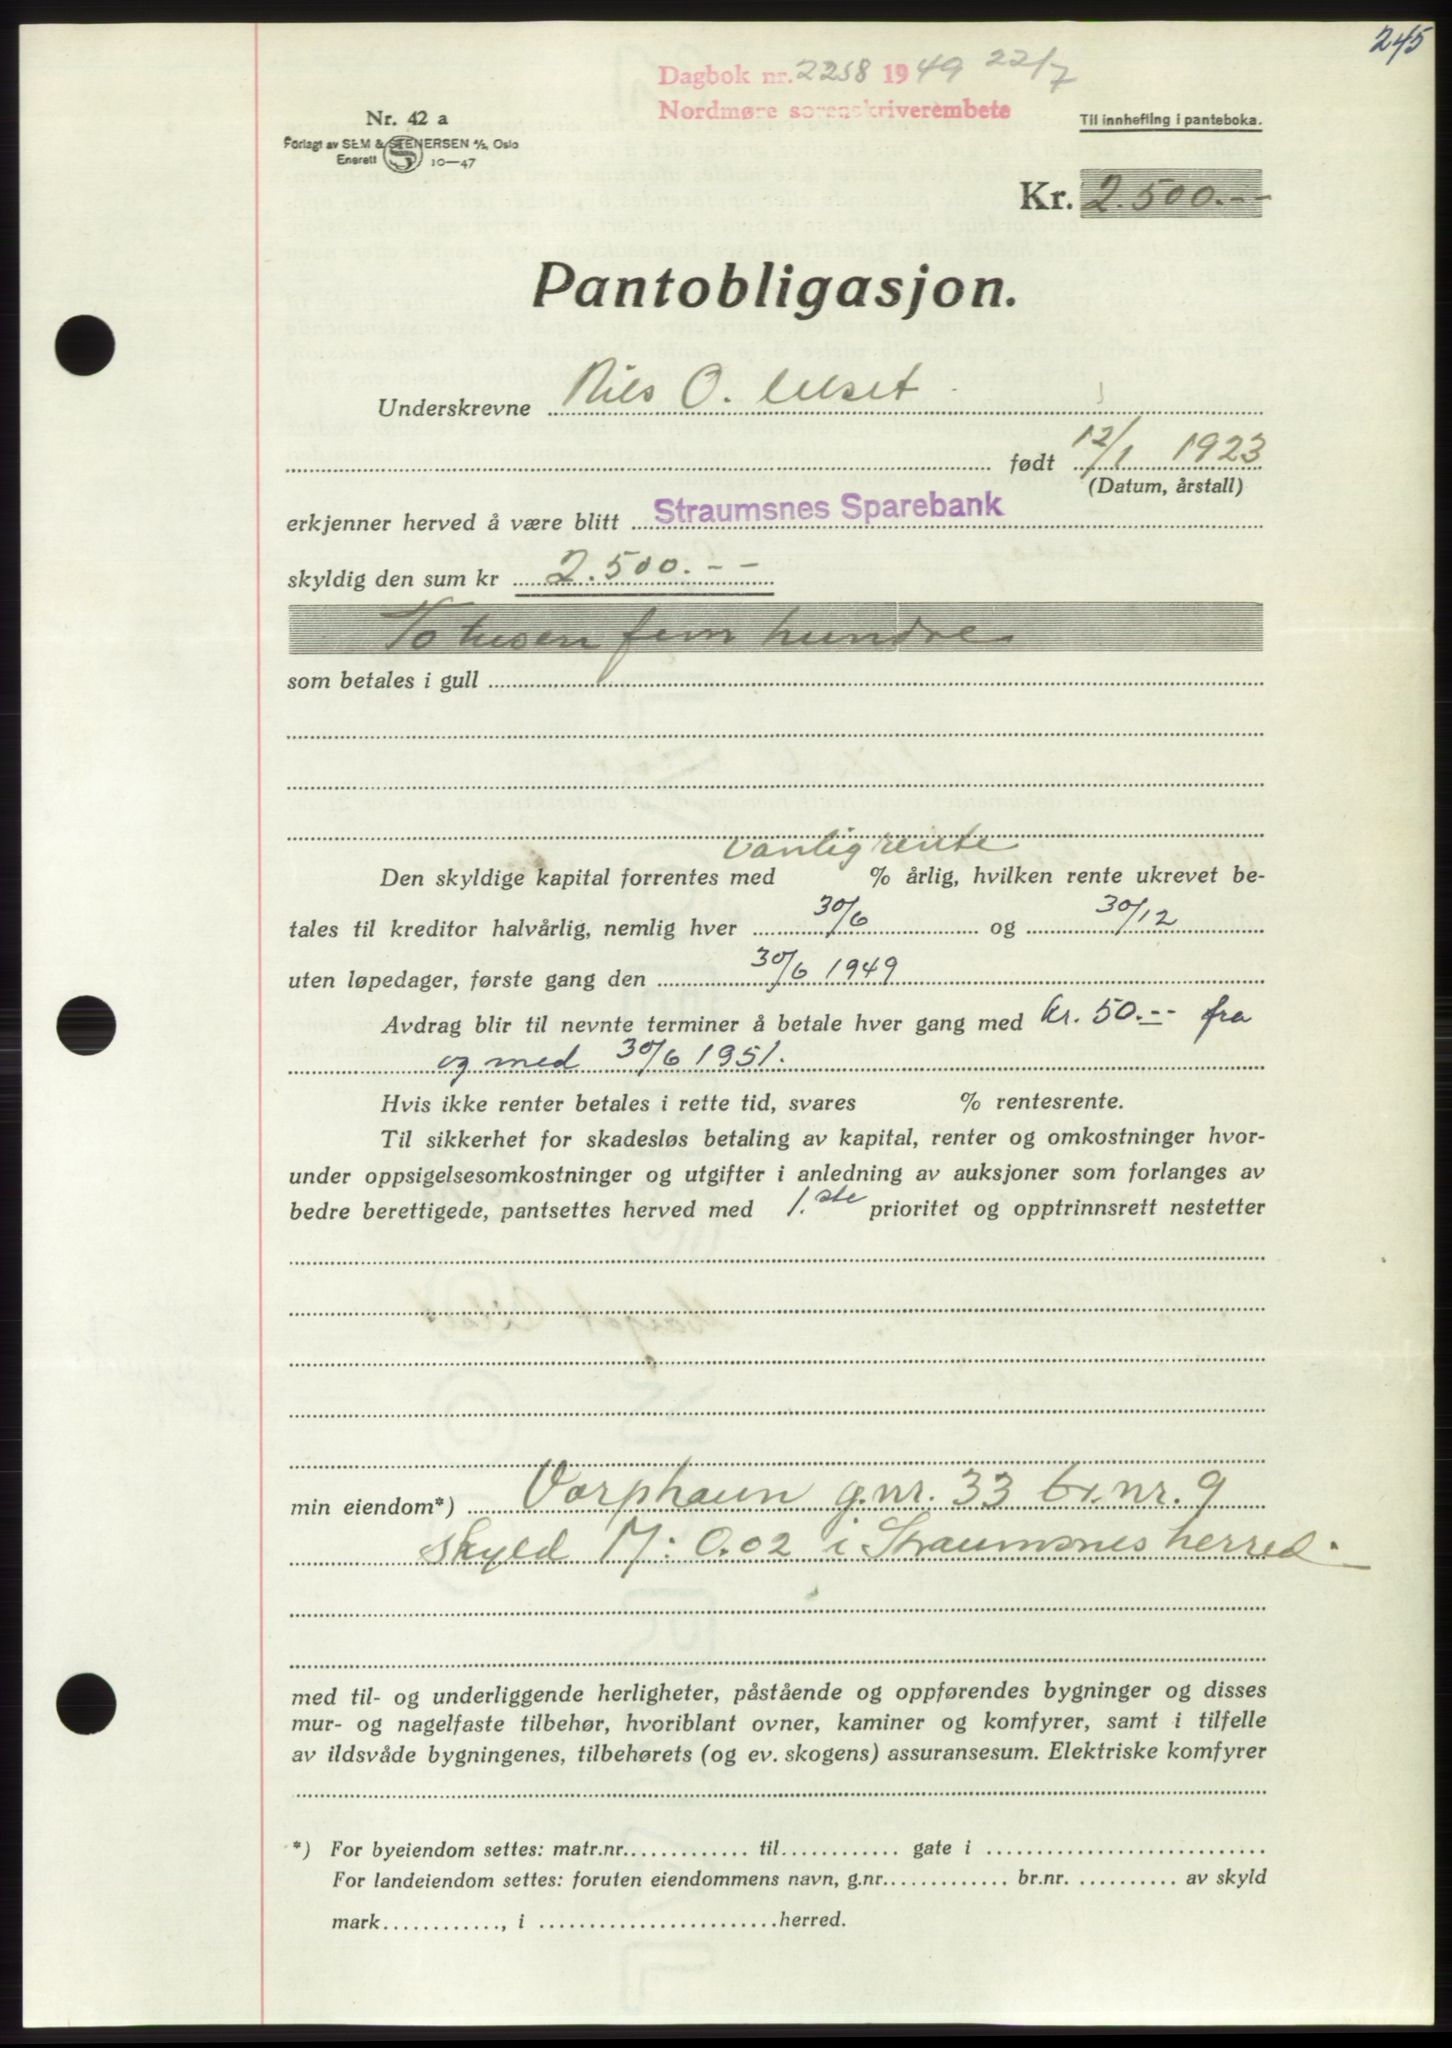 245
Dagbok nr. 2258 1949 22/7
Nordmøre sorenskriverembete
Nr. 42 a
Forlagt av SEM & STENERSEN A/S, Oslo
Enerett S 10—47
Til innhefting i panteboka.
Kr. 2.500.--
Pantobligasjon.
Underskrevne Nils O. Ulset
født 12/1 1923
(Datum, årstall)
erkjenner herved å være blitt Straumsnes Sparebank
skyldig den sum kr 2.500.--
To tusen fem hundre
som betales i gull
vanlig rente
Den skyldige kapital forrentes med % årlig, hvilken rente ukrevet be-
tales til kreditor halvårlig, nemlig hver 30/6 og 30/12
uten løpedager, første gang den 30/6 1949
Avdrag blir til nevnte terminer å betale hver gang med kr. 50.-- fra
og med 30/6 1951.
Hvis ikke renter betales i rette tid, svares % rentesrente.
Til sikkerhet for skadesløs betaling av kapital, renter og omkostninger hvor-
under oppsigelsesomkostninger og utgifter i anledning av auksjoner som forlanges av
bedre berettigede, pantsettes herved med 1.ste prioritet og opptrinnsrett nestetter
min eiendom*) Vorphaun g.nr. 33 br.nr. 9
skyld M: 0.02 i Straumsnes herred.
med til- og underliggende herligheter, påstående og oppførendes bygninger og disses
mur- og nagelfaste tilbehør, hvoriblant ovner, kaminer og komfyrer, samt i tilfelle
av ildsvåde bygningenes, tilbehørets (og ev. skogens) assuransesum. Elektriske komfyrer
*) For byeiendom settes: matr.nr. til gate i
For landeiendom settes: foruten eiendommens navn, g.nr. br.nr. av skyld
mark , i herred.